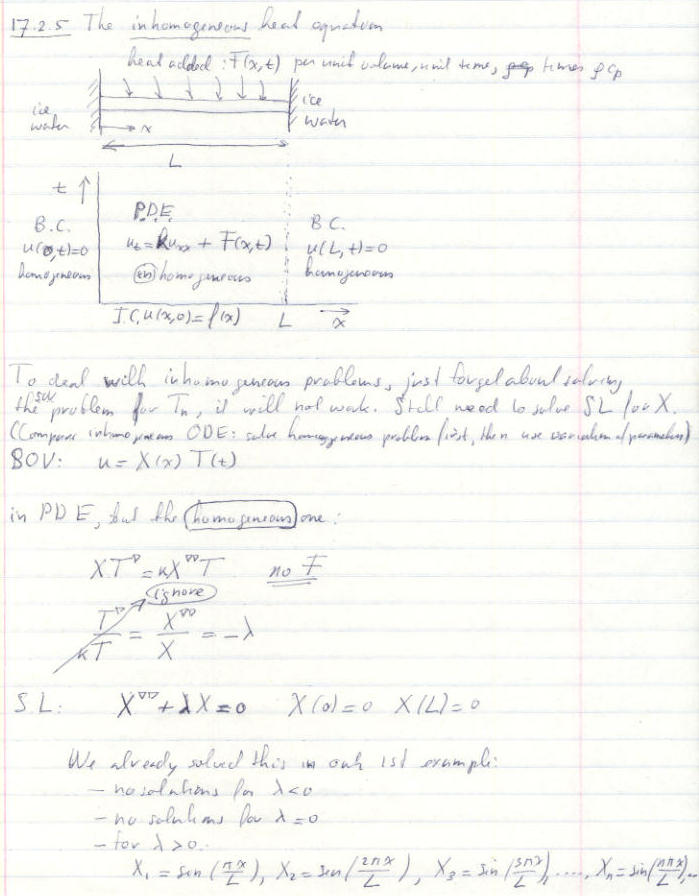 17.2.5 The inhomogeneous heat equation
heat added : F(x,t) per unit volume, unit time, times ρ cp
ice water
ice water
x
L
t
P.D.E.
B.C.
u(0,t)=0
homogeneous
ut = k uxx + F(x,t)
(in)homogeneous
B.C.
u(L,t)=0
homogeneous
I.C. u(x,0)=f(x) L x
To deal with inhomogeneous problems, just forget about solving
the sub problem for Tn, it will not work. Still need to solve SL for X.
(Compare inhomogeneous ODE: solve homogeneous problem first, then use variation of parameters)
SOV: u = X(x) T(t)
in PDE, but the homogeneous one:
XT' = kX''T no F
ignore
T'/kT = X''/X = -λ
S L: X'' + λX = 0 X(0)=0 X(L)=0
We already solved this in our 1st example:
- no solutions for λ<0
- no solutions for λ=0
- for λ>0.
X1 = sin(πx/L), X2 = sin(2πx/L), X3 = sin(3πx/L), ...., Xn = sin(nπx/L),...